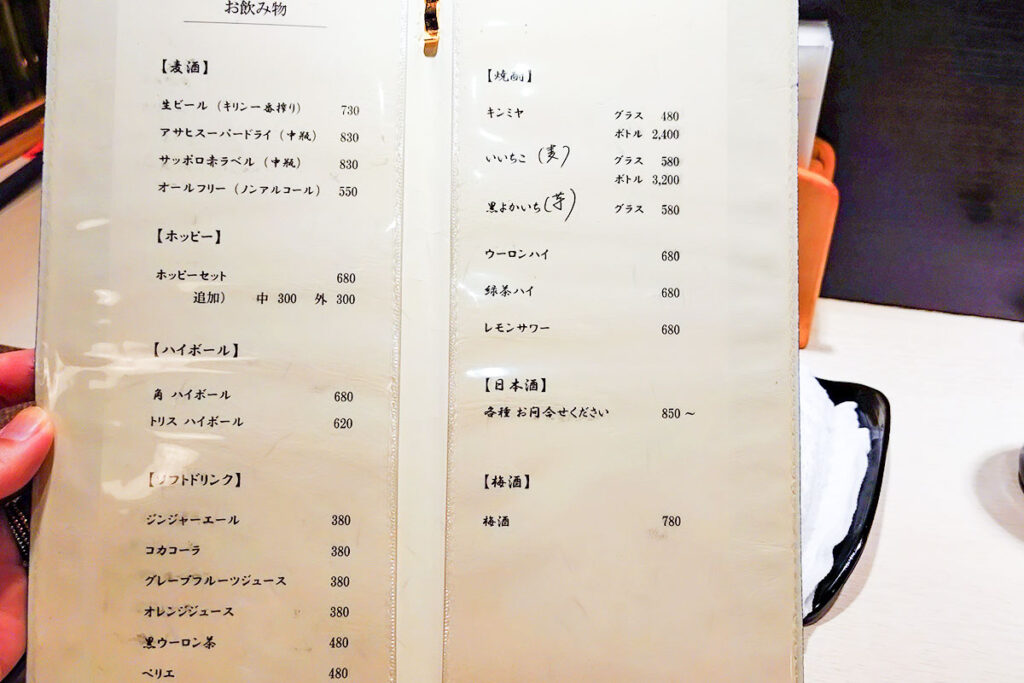 お飲み物
【麦酒】
生ビール（キリン一番搾り） 730
アサヒスーパードライ（中瓶） 830
サッポロ赤ラベル（中瓶） 830
オールフリー（ノンアルコール） 550
【ホッピー】
ホッピーセット 680
追加） 中 300 外 300
【ハイボール】
角 ハイボール 680
トリス ハイボール 620
【ソフトドリンク】
ジンジャーエール 380
コカコーラ 380
グレープフルーツジュース 380
オレンジジュース 380
黒ウーロン茶 480
ペリエ 480
【焼酎】
キンミヤ グラス 480
ボトル 2,400
いいちこ（麦） グラス 580
ボトル 3,200
黒よかいち（芋） グラス 580
ウーロンハイ 680
緑茶ハイ 680
レモンサワー 680
【日本酒】
各種 お問合せください 850～
【梅酒】
梅酒 780